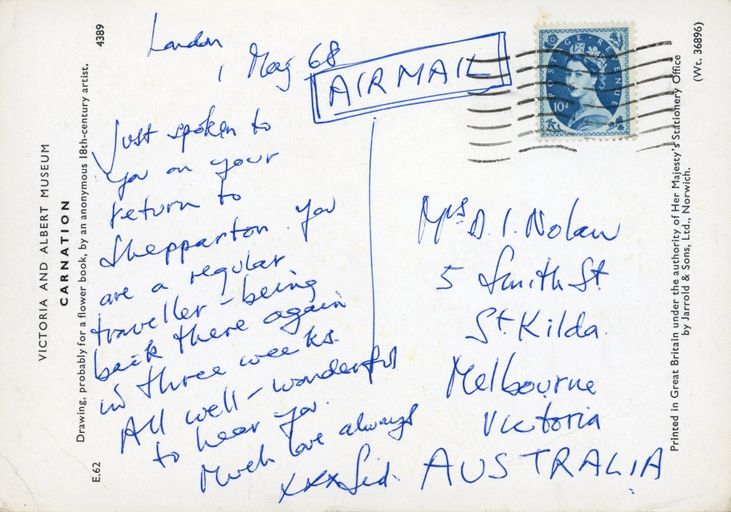 VICTORIA AND ALBERT MUSEUM
CARNATION
Drawing, probably for a flower book, by an anonymous 18th-century artist.
E.62
4389
London
1 May 68
AIRMAIL
Just spoken to
you on your
return to
Shepparton. You
are a regular
traveller - being
back there again
in three weeks.
All well - wonderful
to hear you.
Much love always
xxx Sid.
POSTAGE REVENUE
10d
Mrs D. I. Nolan
5 Smith St
St. Kilda
Melbourne
Victoria
AUSTRALIA
Printed in Great Britain under the authority of Her Majesty's Stationery Office
by Jarrold & Sons, Ltd., Norwich.
(Wt. 36896)